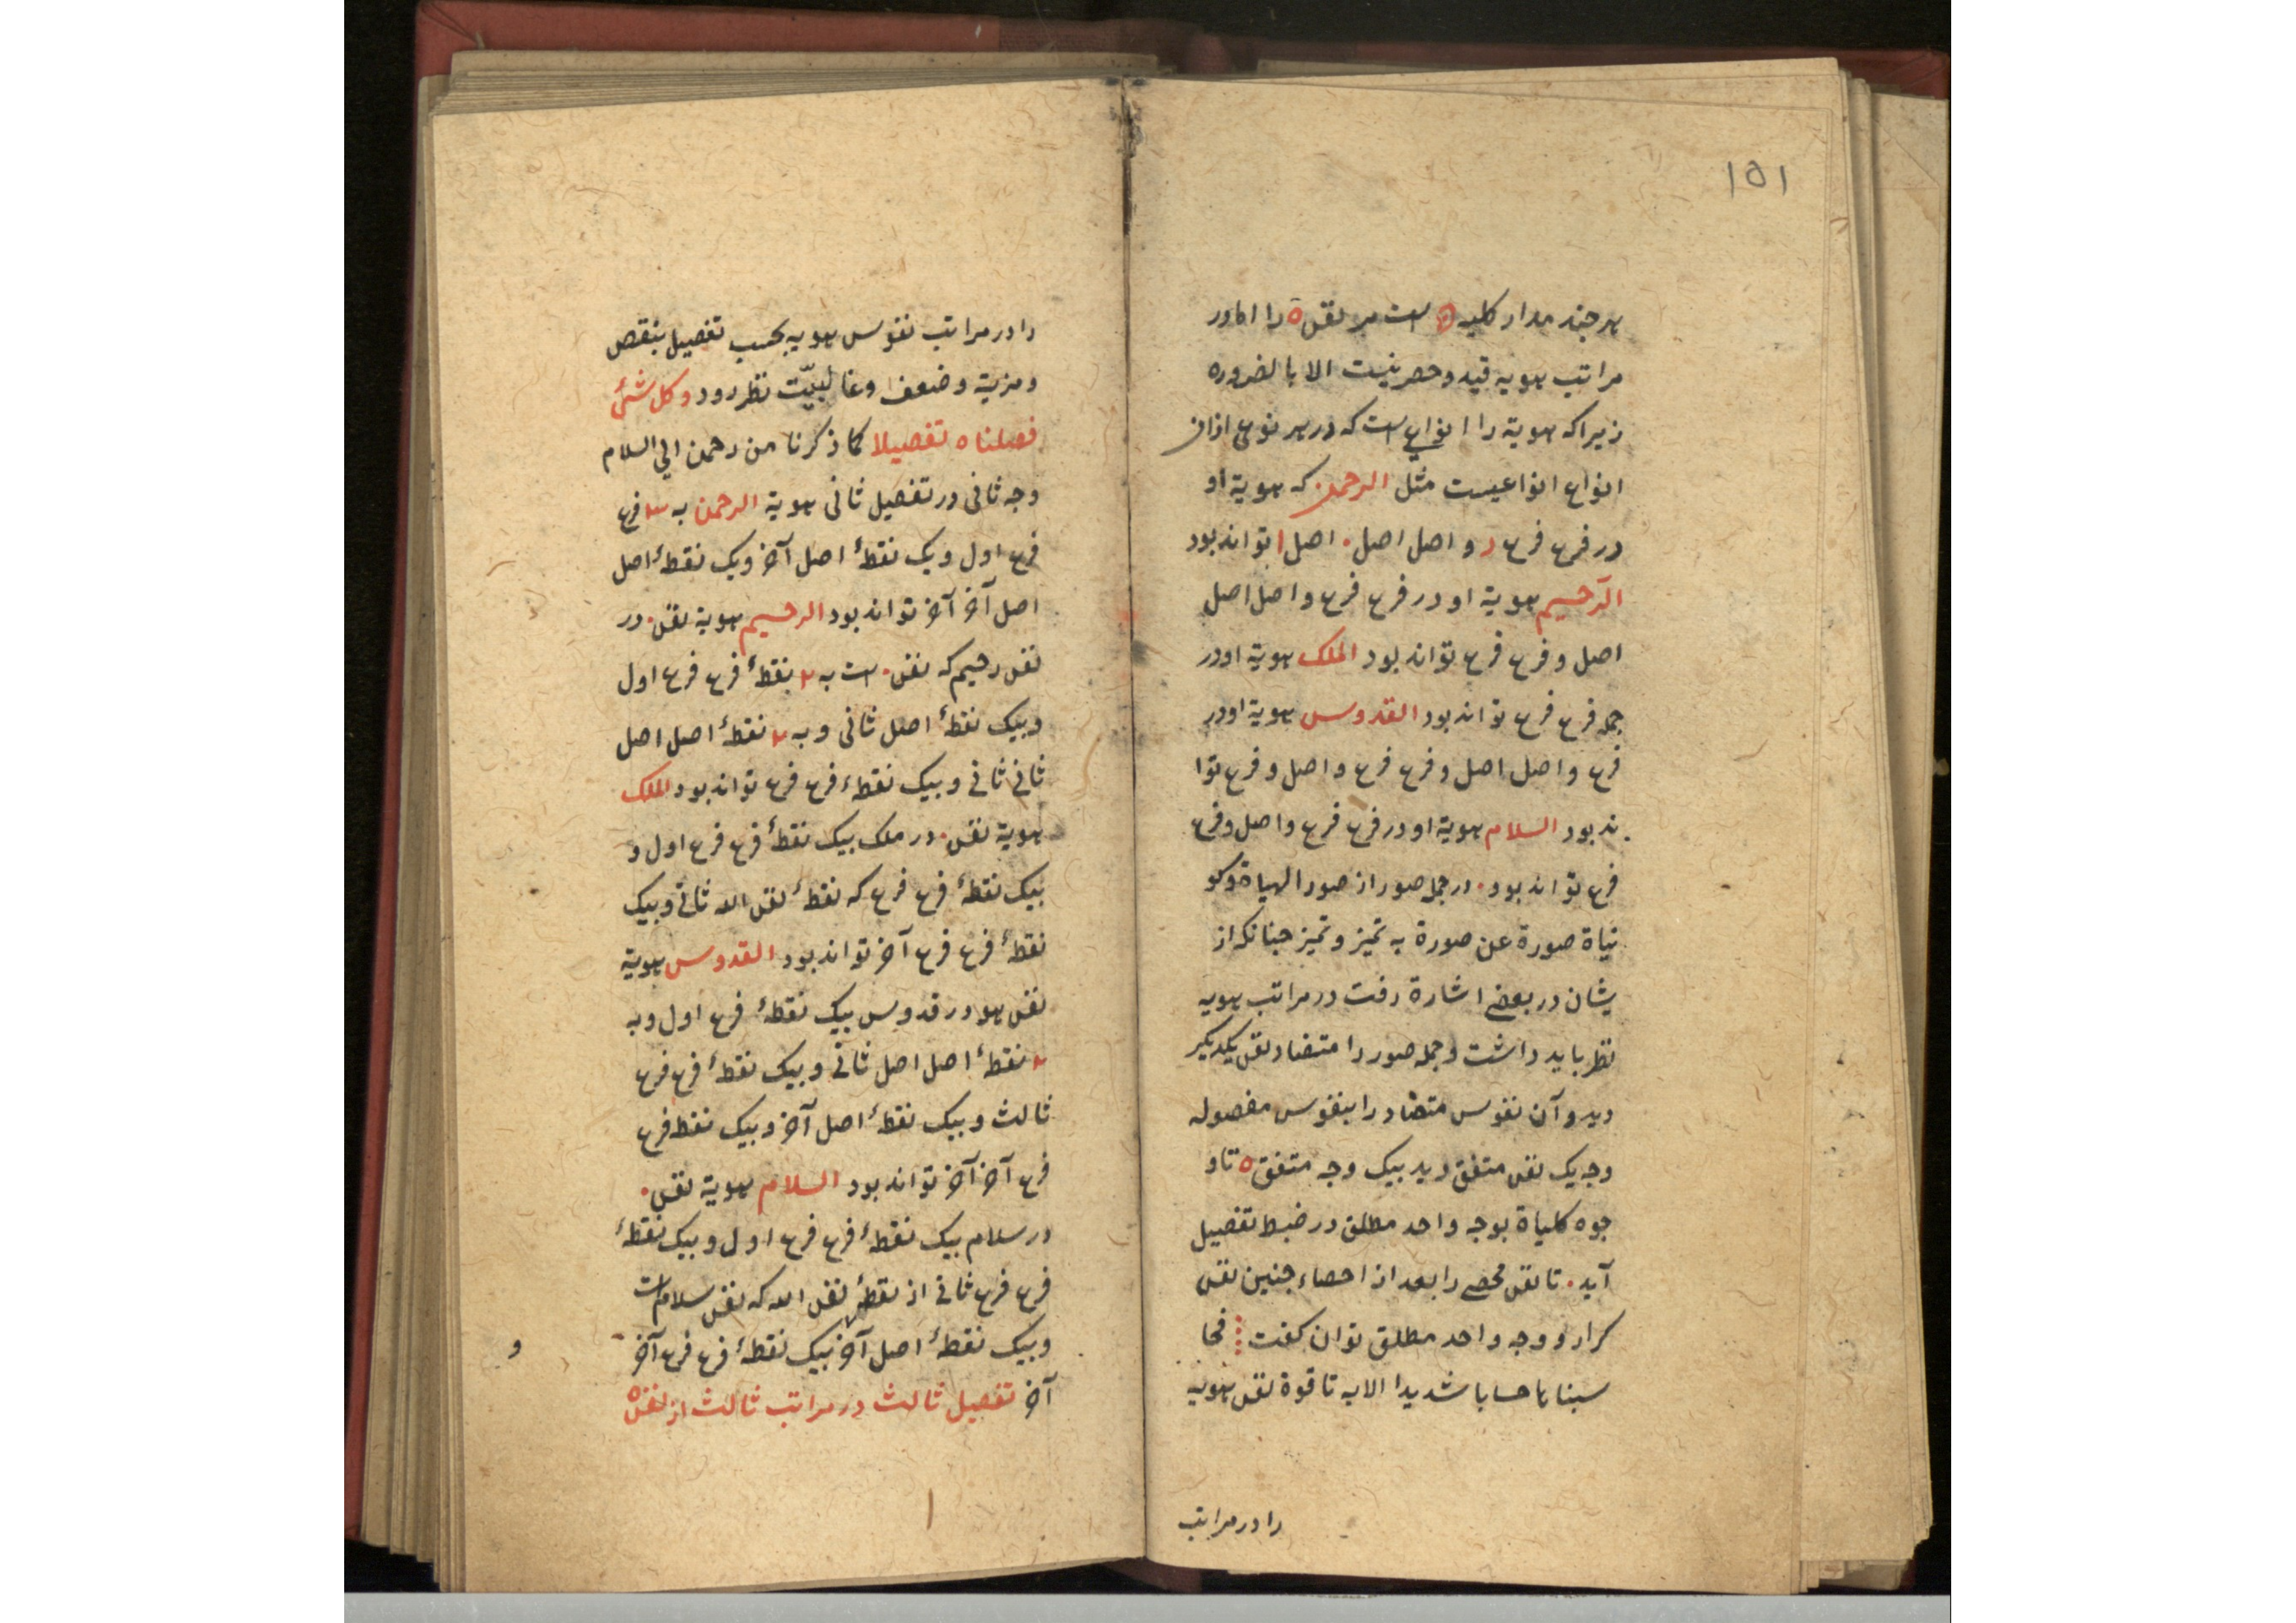 ١٥١
هر چند مدار کلیه ه است بر نقس ه را اما در
مراتب هویه قید و حصر نیست الا بالضروره
زیرا که هویة را انواع است که در هر نوعی ازان
انواع انواعیست مثل الرحمن که هویة او
در فرع فرع د و اصل اصل . اصل ا تواند بود
الرحیم هویة او در فرع فرع و اصل اصل
اصل و فرع فرع تواند بود الملک هویة او در
جمله فرع فرع تواند بود القدوس هویة او در
فرع و اصل اصل و فرع فرع و اصل و فرع توا
ند بود السلام هویة او در فرع فرع و اصل و فرع
فرع تواند بود . در جمله صور از صور الهیاة و کو
نیاة صورة عن صورة به تمیز و تمیز چنانکه از
یشان در بعضی اشارة رفت در مراتب هویه
نظر باید داشت و جمله صور را متضاد نقس یکدیگر
دید و آن نفوس متضاد را بنفوس مفصوله
وجه یک نقس متفق دید بیک وجه متفق ه تا و
جوه کلیاة بوجه واحد مطلق در ضبط تفصیل
آید . تا نقس محصی را بعد از احصاء چنین نقس
کرار و وجه واحد مطلق توان گفت فحا
سبناها حسابا شدیدا الایه تا قوة نقس هویه
را در مراتب
را در مراتب نفوس هویه بحسب تفصیل بنقص
و مزیة و ضعف و غالبیّت نظر رود و کل شئ
فصلناه تفصیلا کما ذکرنا من رحمن الی السلام
وجه ثانی در تفصیل ثانی هویة الرحمن به ۳ فرع
فرع اول و یک نقطهٔ اصل آخر و یک نقطهٔ اصل
اصل آخر آخر تواند بود الرحیم هویة نقس . در
نقس رحیم که نقس . است به ۲ نقطهٔ فرع فرع اول
و بیک نقطهٔ اصل ثانی و به ۲ نقطهٔ اصل اصل
ثانی ثانی و بیک نقطهٔ فرع فرع تواند بود الملک
هویة نقس . در ملک بیک نقطهٔ فرع فرع اول و
بیک نقطهٔ فرع فرع که نقطهٔ نقس الله ثانی و بیک
نقطهٔ فرع فرع آخر تواند بود القدوس هویة
نقس هو در قدوس بیک نقطهٔ فرع اول و به
۲ نقطهٔ اصل اصل ثانی و بیک نقطهٔ فرع فرع
ثالث و بیک نقطهٔ اصل آخر و بیک نقطه فرع
فرع آخر آخر تواند بود السلام هویة نقس .
در سلام بیک نقطهٔ فرع فرع اول و بیک نقطهٔ
فرع فرع ثانی از نقطهٔ نقس الله که نقس سلام است
و بیک نقطهٔ اصل آخر بیک نقطهٔ فرع فرع آخر
آخر تفصیل ثالث در مراتب ثالث از نقس ه
و